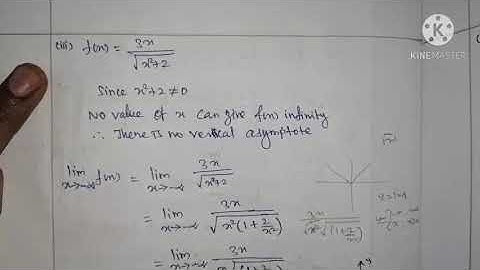 KINEMASTER
(iii) f(x) = 3x / √(x²+2)
Since x²+2 ≠ 0
No value of x can give f(x) infinity
∴ There is no vertical asymptote
lim x→-∞ f(x) = lim x→-∞ 3x / √(x²+2)
= lim x→-∞ 3x / √(x²(1+2/x²))
3x / √x² √(1+2/x²)
= lim x→-∞ 3x